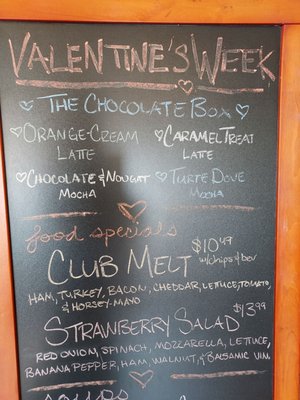 VALENTINE'S WEEK
THE CHOCOLATE BOX
ORANGE-CREAM LATTE
CARAMEL TREAT LATTE
CHOCOLATE & NOUGAT MOCHA
TURTE DOVE MOCHA
food specials
CLUB MELT $10.49 w/chips & bev
HAM, TURKEY, BACON, CHEDDAR, LETTUCE, TOMATO,
& HORSEY-MAYO
$13.99
STRAWBERRY SALAD
RED ONION, SPINACH, MOZZARELLA, LETTUCE,
BANANA PEPPER, HAM, WALNUT, & BALSAMIC VIN